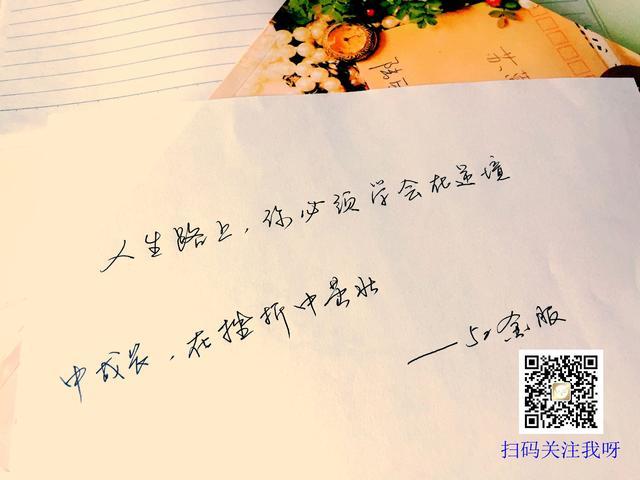 苏
陆
人生路上，你必须学会在逆境
中成长，在挫折中茁壮
——52金服
扫码关注我呀